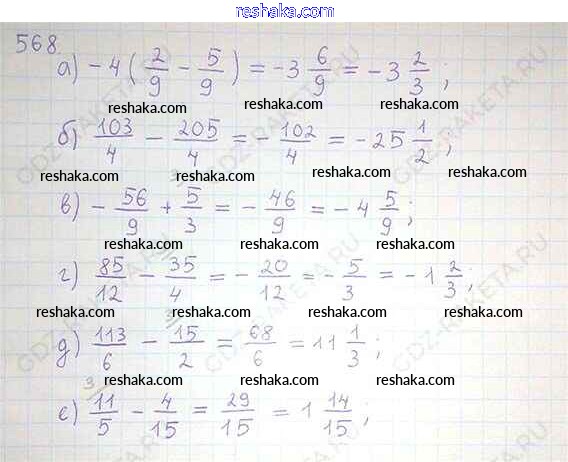 www.reshaka.com
568
а) - 4 ( 2/9 - 5/9 ) = -3 6/9 = -3 2/3 ;
reshaka.com reshaka.com reshaka.com
б) 103/4 - 205/4 = - 102/4 = -25 1/2 ;
reshaka.com reshaka.com reshaka.com
в) - 56/9 + 5/3 = - 46/9 = -4 5/9 ;
reshaka.com reshaka.com reshaka.com
г) 85/12 - 35/4 = - 20/12 = - 5/3 = -1 2/3 ;
reshaka.com reshaka.com reshaka.com
д) 113/6 - 15/2 = 68/6 = 11 1/3 ;
reshaka.com reshaka.com reshaka.com
3
е) 11/5 - 4/15 = 29/15 = 1 14/15 ;
reshaka.com reshaka.com reshaka.com
GDZ-RAKETA.RU